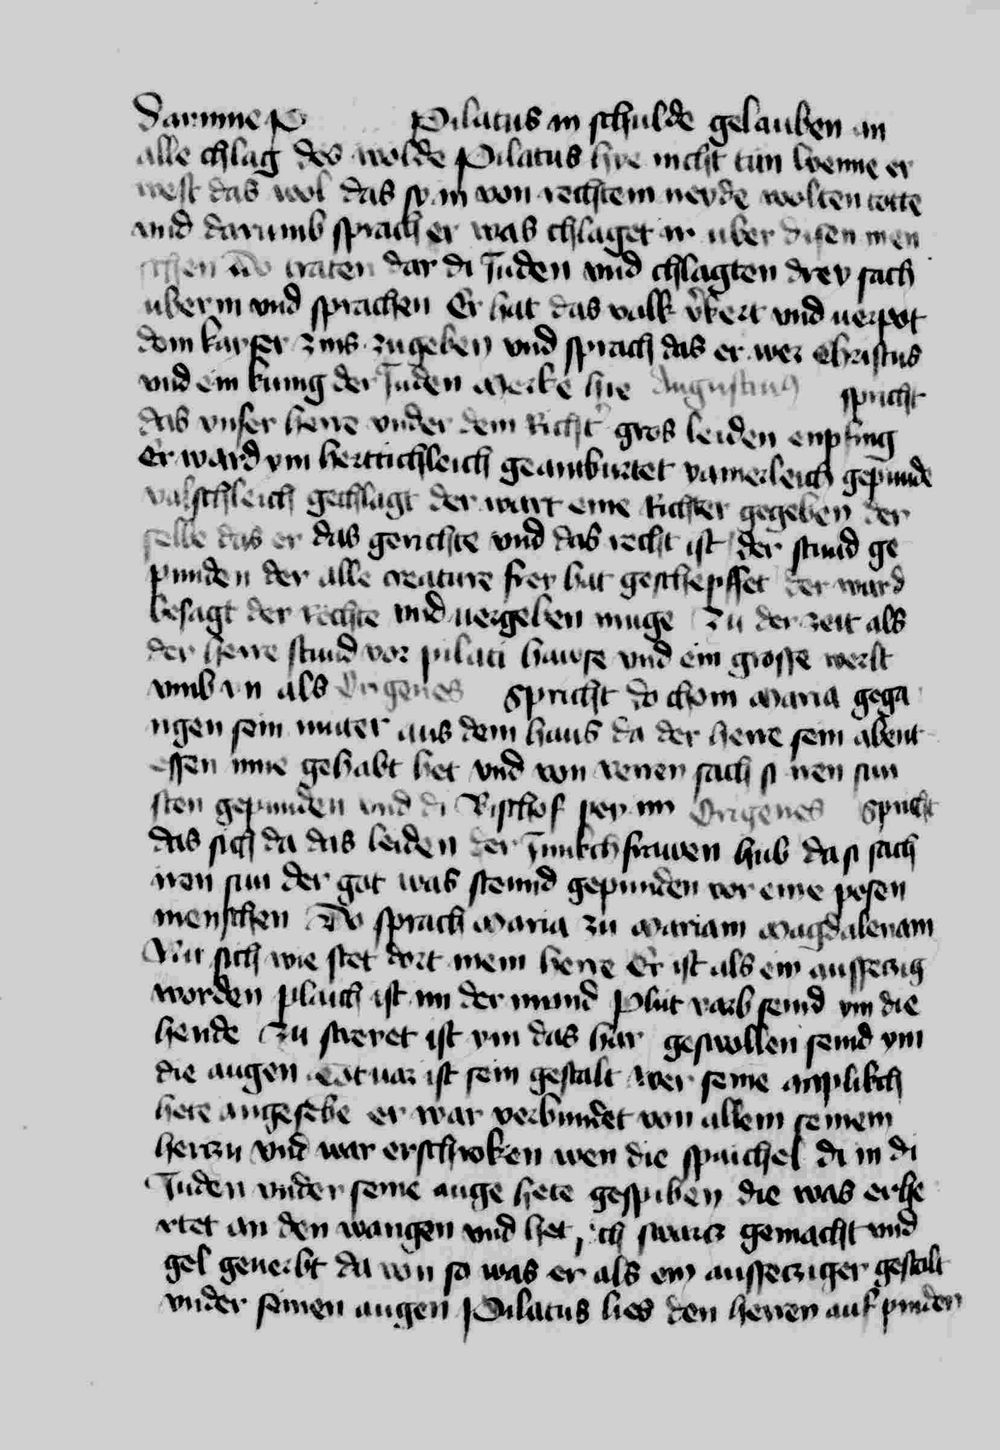 Darumme P Pilatus in schulde gelauben an
alle chlag des wolde Pilatus hye nicht tun wenne er
west das wol das sy in von rechtem neyde wolten totte
und darumb sprach er was chlaget ir uber disen men
schen Do traten dar di Juden und chlagten drey sach
uber in und sprachen Er hat das volk v̓kert und verpot
dem kayser zins zu geben und sprach das er wer Christus
und ein kunig der Juden Merke hie Augustinus spricht
das unser herre under dem Richt̓ gros leiden enpfing
Er ward ym hertichleich geantwurtet yamerleich gepunde
valschleich gechlagt der wart eine Richter gegeben der
selbe das er das gerichte und das recht ist der stund ge
punden der alle creature frey hat geschepffet der ward
besagt der rechte und vergeben muge Zu der zeit als
der herre stund vor pilati hawse und ein grosse werlt
umb yn als Origenes Spricht do chom Maria gega
ngen sein muter aus dem haus da der herre sein abent
essen inne gehabt het und von verren sach si iren sun
sten gepunden und di Bischof pey im Origenes Spricht
das sich da das leiden der Junkchfrawen hub da si sach
iren sun der got was stennd gepunden vor eine posen
menschen Do sprach Maria zu Mariam Magdalenam
Nu sich wie stet dort mein herre Er ist als ein aussetzig
worden plaich ist im der mund Plut varb seind ym die
hende Zu streret ist ym das har geswollen seind ym
die augen Totvar ist sein gestalt wer seine antplikch
hete angesehe er war verbundet von allem seinem
hertzn und war erschroken wen die spaichel di in di
Juden under seine auge hete gespiben die was erhe
rtet an den wangen und het sich swartz gemacht und
gel geverbt da von so was er als ein aussetziger gestalt
under seinen augen Pilatus lies den herren auf pinden